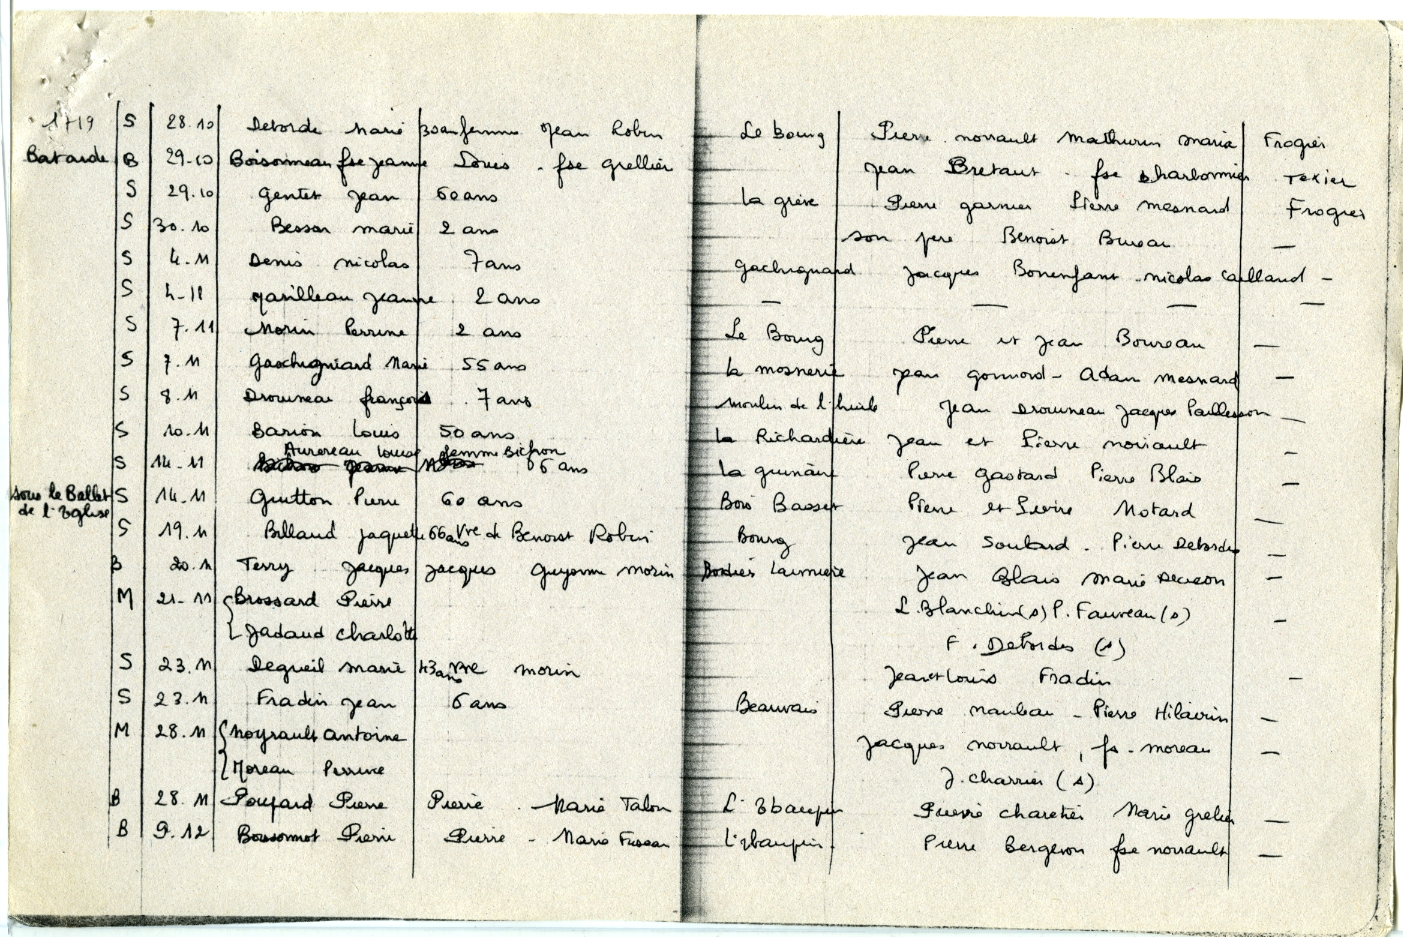 1719 S 28.10 Deborde Marie 30 ans femme Jean Robin Le bourg Pierre norrault Mathurin Maria Frogier
Batarde B 29-10 Boisonneau fse Jeanne Louis - fse grellier Jean Bretaut - fse charbonnier Texier
S 29.10 gentet jean 60 ans la grève Pierre garnier Pierre mesnard Frogier
S 30.10 Besson marie 2 ans son pere Benoist Bureau —
S 4.11 Denis nicolas 7 ans gachignard Jacques Bonenfant - nicolas Caillaud -
S 4-11 Jeanne 2 ans — — — —
S 7.11 Morin Perrine 2 ans Le Bourg Pierre et Jean Boureau —
S 7.11 Gaschigniard Marie 55 ans la mosnerie jean gonnord - Adam Mesnard —
S 8.11 Drouneau françois 7 ans moulin de l'huile Jean Drouneau Jacques Paillesson —
S 10.11 Barion Louis 50 ans la Richardière Jean et Pierre noriault —
Aurereau Louise femme Bichon
S 14-11 6 ans La guinâire Pierre Gastard Pierre Blais —
sous le Ballet S 14.11 Guitton Pierre 60 ans Bois Basset Pierre et Pierre Motard —
de l'Eglise
S 19.11 Billaud Jaquette 66 ans Vve de Benoist Robin Bourg Jean Soulard - Pierre Debordes —
B 20.11 Terry Jacques Jacques Guyonne morin Jean Blais Marie —
M 21-11 { Brossard Pierre L. Blanchin(s) P. Fauveau(s) —
{ Jadaud Charlotte F. Debordes (s)
S 23.11 Degueil Marie 43 ans Vve morin Jean et Louis Fradin —
S 23.11 Fradin Jean 6 ans Beauvais Pierre naubau - Pierre Hilairin —
M 28.11 { Noyrault Antoine Jacques norrault, fs - moreau —
{ Moreau Perrine J. charrier (s)
B 28.11 Poupard Pierre Pierre - Marie Talon L'Ebaupin Pierre charetier Marie grelier —
B 9.12 Boissonnot Pierre Pierre - Marie L'ebaupin Pierre Bergeron fse norrault —